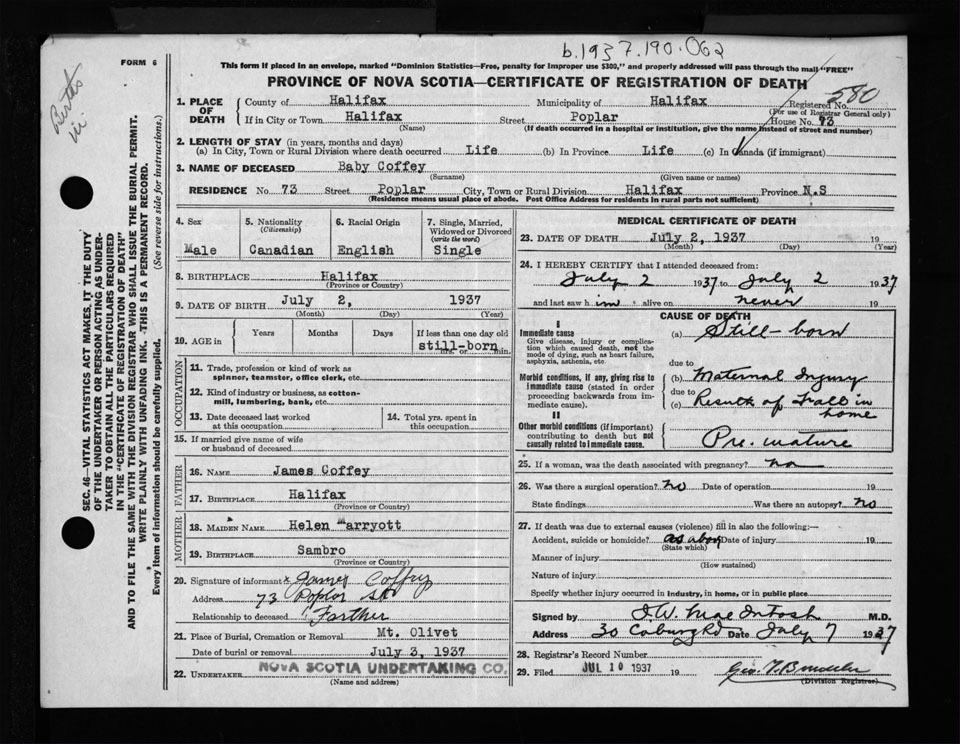 b.1937.190.062
Births
FORM 6
This form if placed in an envelope, marked "Dominion Statistics—Free, penalty for improper use $300," and properly addressed will pass through the mail "FREE"
PROVINCE OF NOVA SCOTIA—CERTIFICATE OF REGISTRATION OF DEATH
SEC. 46—VITAL STATISTICS ACT MAKES IT THE DUTY
OF THE UNDERTAKER OR PERSON ACTING AS UNDER-
TAKER TO OBTAIN ALL THE PARTICULARS REQUIRED
IN THE "CERTIFICATE OF REGISTRATION OF DEATH"
AND TO FILE THE SAME WITH THE DIVISION REGISTRAR WHO SHALL ISSUE THE BURIAL PERMIT.
WRITE PLAINLY WITH UNFADING INK. THIS IS A PERMANENT RECORD.
Every item of information should be carefully supplied. (See reverse side for instructions.)
1. PLACE OF DEATH County of Halifax Municipality of Halifax Registered No. 580
(For use of Registrar General only)
If in City or Town Halifax Street Poplar House No. 93
(Name) (If death occurred in a hospital or institution, give the name instead of street and number)
2. LENGTH OF STAY (in years, months and days)
(a) In City, Town or Rural Division where death occurred Life (b) In Province Life (c) In Canada (if immigrant)
3. NAME OF DECEASED Baby Coffey
(Surname) (Given name or names)
RESIDENCE No. 73 Street Poplar City, Town or Rural Division Halifax Province N.S
(Residence means usual place of abode. Post Office Address for residents in rural parts not sufficient)
4. Sex 5. Nationality (Citizenship) 6. Racial Origin 7. Single, Married, Widowed or Divorced (write the word)
Male Canadian English Single
8. BIRTHPLACE Halifax
(Province or Country)
9. DATE OF BIRTH July 2, 1937
(Month) (Day) (Year)
10. AGE in Years Months Days If less than one day old
still-born
hrs. or min.
OCCUPATION
11. Trade, profession or kind of work as
spinner, teamster, office clerk, etc.
12. Kind of industry or business, as cotton-
mill, lumbering, bank, etc.
13. Date deceased last worked
at this occupation 14. Total yrs. spent in
this occupation
15. If married give name of wife
or husband of deceased
FATHER
16. NAME James Coffey
17. BIRTHPLACE Halifax
(Province or Country)
MOTHER
18. MAIDEN NAME Helen Marryott
19. BIRTHPLACE Sambro
(Province or Country)
20. Signature of informant James Coffey
Address 73 Poplar St
Relationship to deceased Farther
21. Place of Burial, Cremation or Removal Mt. Olivet
Date of burial or removal July 3, 1937
22. UNDERTAKER NOVA SCOTIA UNDERTAKING CO.
(Name and address)
MEDICAL CERTIFICATE OF DEATH
23. DATE OF DEATH July 2, 1937 19
(Month) (Day) (Year)
24. I HEREBY CERTIFY that I attended deceased from:
July 2 1937 to July 2 1937
and last saw h im alive on never 19
CAUSE OF DEATH
I
Immediate cause (a) Still-born
Give disease, injury or complica-
tion which caused death, not the
mode of dying, such as heart failure,
asphyxia, asthenia, etc.
due to
Morbid conditions, if any, giving rise to
immediate cause (stated in order
proceeding backwards from im-
mediate cause).
(b) Maternal Injury
due to
(c) Results of Fall in
home
II
Other morbid conditions (if important)
contributing to death but not
causally related to immediate cause.
Pre. mature
25. If a woman, was the death associated with pregnancy? no
26. Was there a surgical operation? no Date of operation 19
State findings Was there an autopsy? no
27. If death was due to external causes (violence) fill in also the following:—
Accident, suicide or homicide? as above Date of injury 19
(State which)
Manner of injury
(How sustained)
Nature of injury
Specify whether injury occurred in industry, in home, or in public place
Signed by I. W. MacIntosh M.D.
Address 30 Coburg Rd Date July 7 1937
28. Registrar's Record Number
29. Filed JUL 10 1937 19
(Division Registrar)